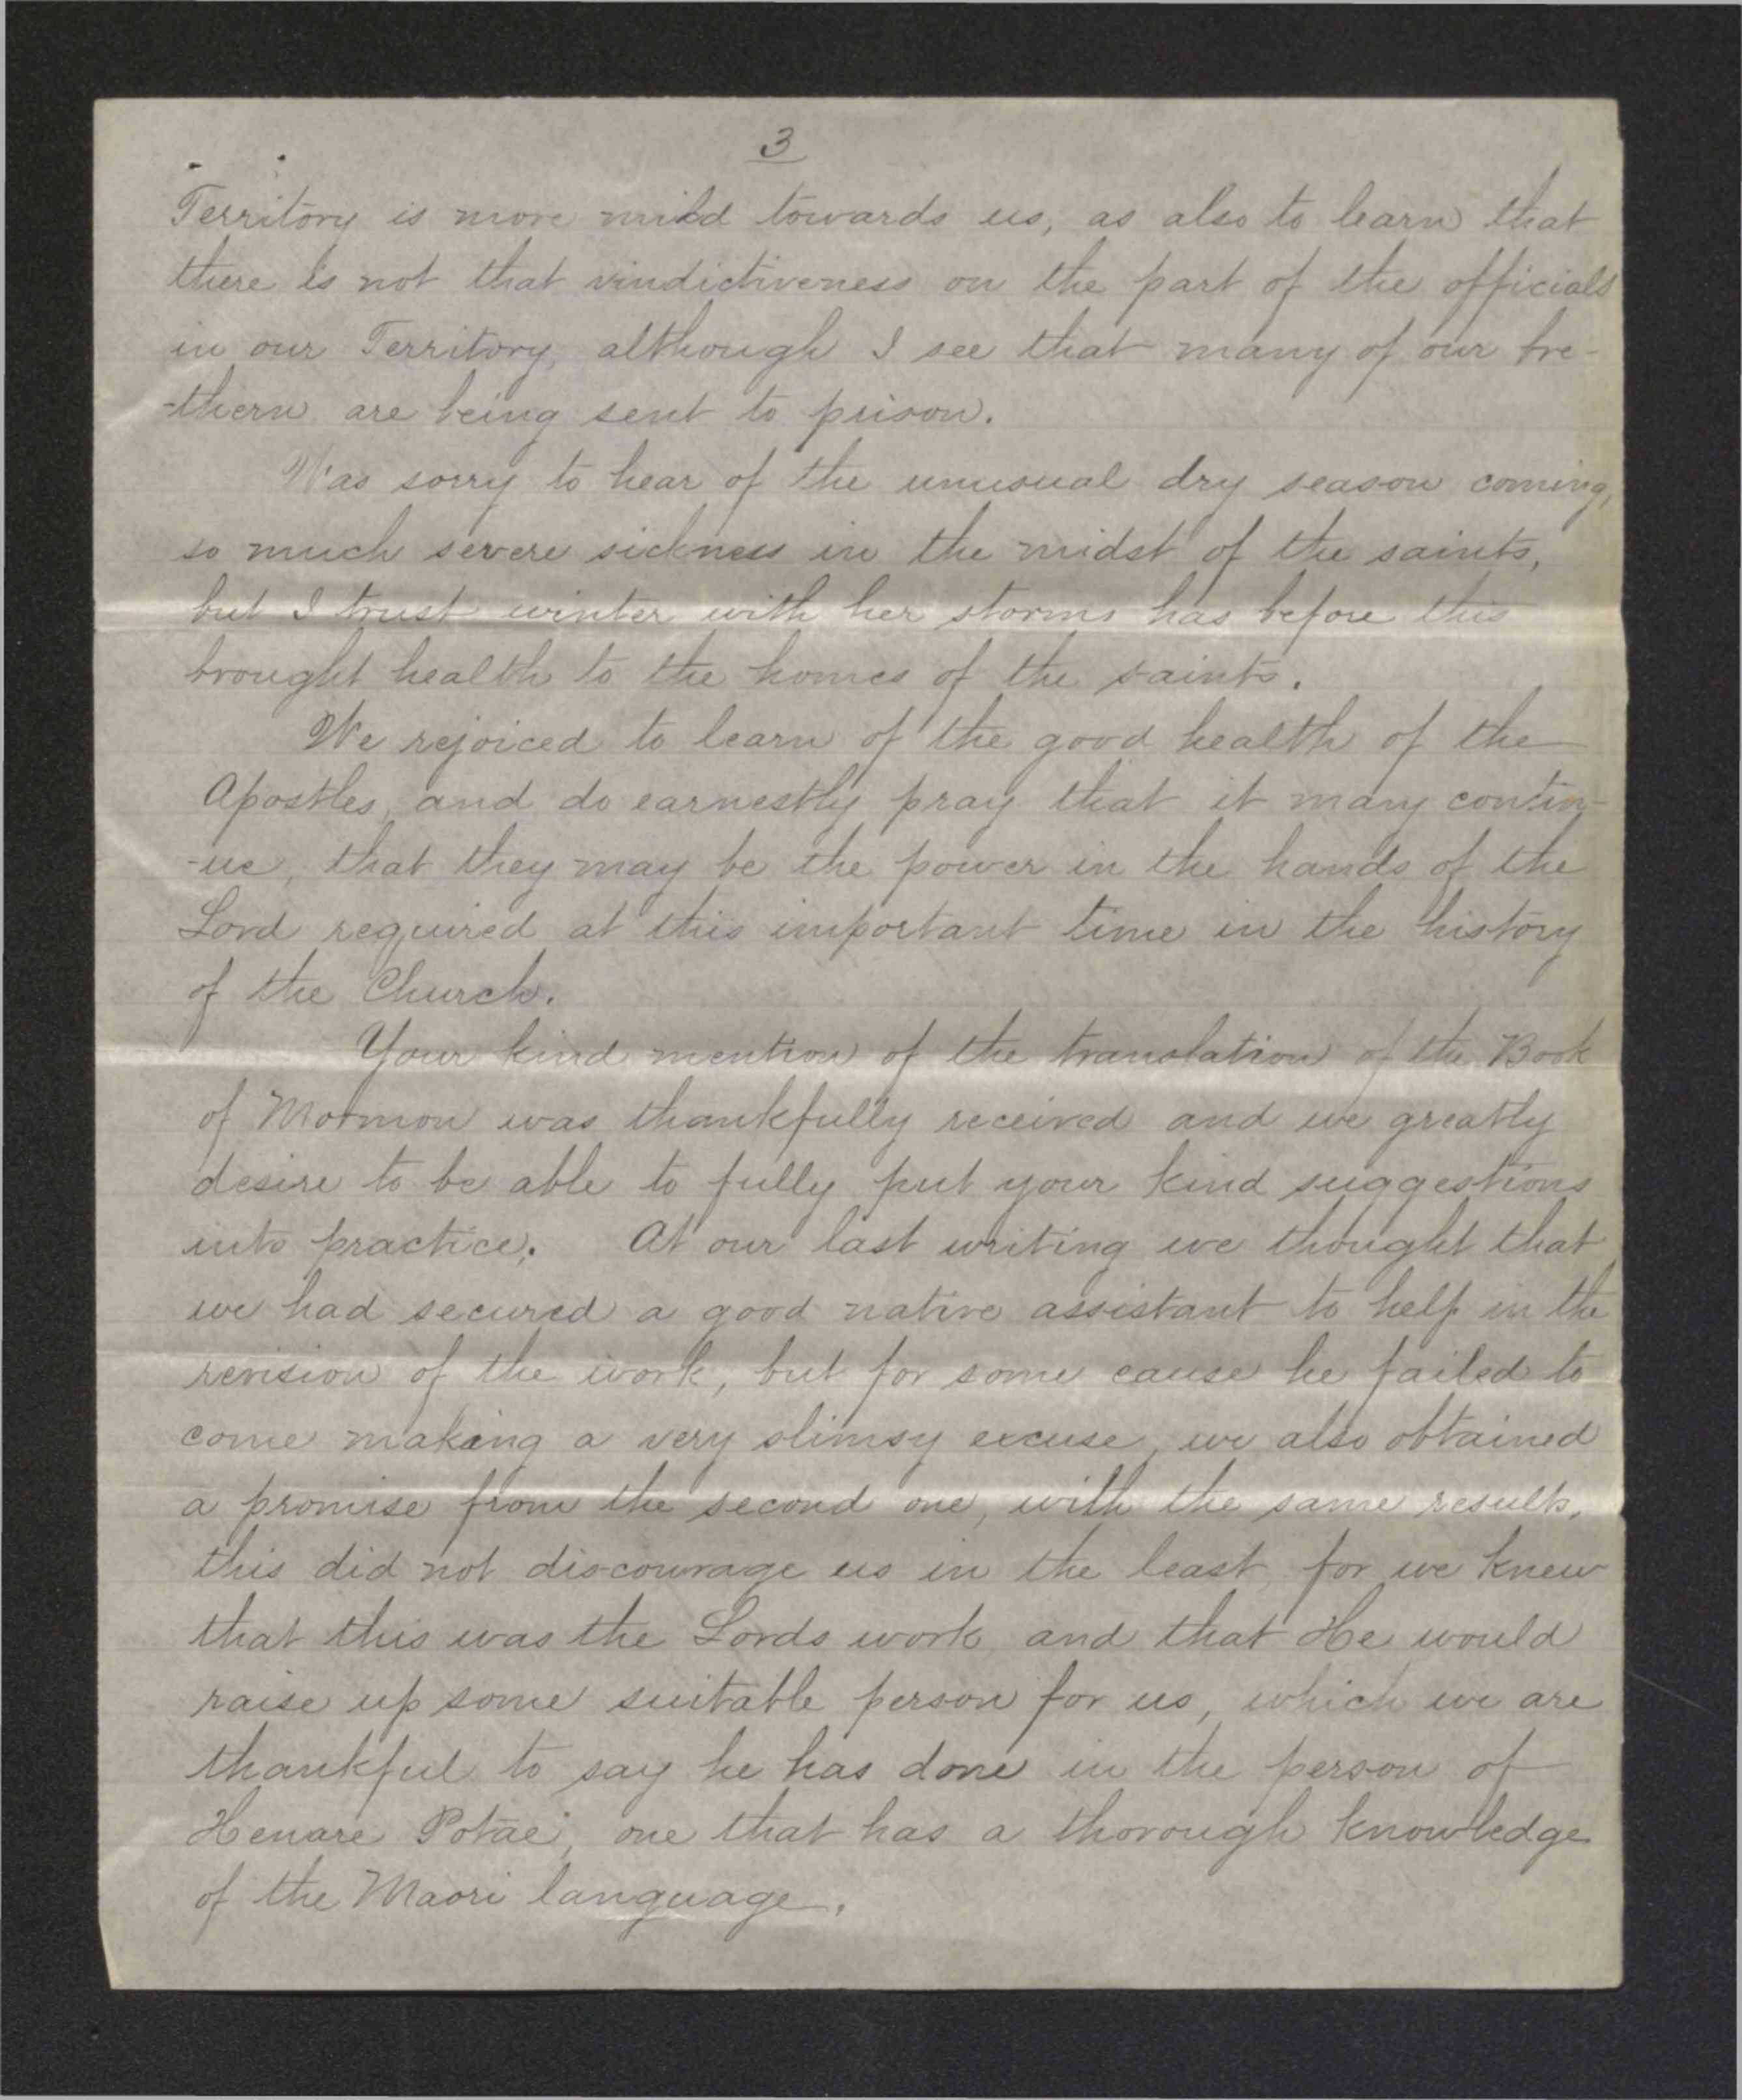 3
Territory is more mild towards us, as also to learn that
there is not that vindictiveness on the part of the officials
in our Territory, although I see that many of our bre-
-thern are being sent to prison.
Was sorry to hear of the unusual dry season coming,
so much severe sickness in the midst of the saints,
but I trust winter with her storms has before this
brought health to the homes of the saints.
We rejoiced to learn of the good health of the
Apostles, and do earnestly pray that it many contin-
-ue, that they may be the power in the hands of the
Lord required at this important time in the history
of the Church.
Your kind mention of the translation of the Book
of Mormon was thankfully received and we greatly
desire to be able to fully put your kind suggestions
into practice. At our last writing we thought that
we had secured a good native assistant to help in the
revision of the work, but for some cause he failed to
come making a very slimsy excuse, we also obtained
a promise from the second one, with the same results,
this did not discourage us in the least, for we knew
that this was the Lords work and that He would
raise up some suitable person for us, which we are
thankful to say he has done in the person of
Henare Potae, one that has a thorough knowledge
of the Maori language.